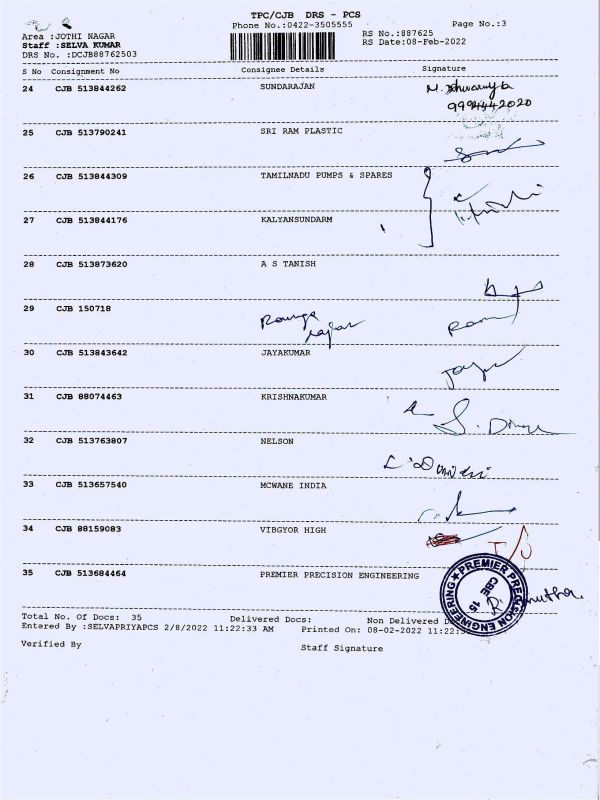 TPC/CJB DRS - PCS
Phone No.:0422-3505555
Page No.:3
Area :JOTHI NAGAR
Staff :SELVA KUMAR
DRS No. :DCJB88762503
RS No.:887625
RS Date:08-Feb-2022
S No Consignment No Consignee Details Signature
24 CJB 513844262 SUNDARAJAN
9994442020
25 CJB 513790241 SRI RAM PLASTIC
26 CJB 513844309 TAMILNADU PUMPS & SPARES
27 CJB 513844176 KALYANSUNDARM
28 CJB 513873620 A S TANISH
29 CJB 150718
30 CJB 513843642 JAYAKUMAR
31 CJB 88074463 KRISHNAKUMAR
32 CJB 513763807 NELSON
33 CJB 513657540 MCWANE INDIA
34 CJB 88159083 VIBGYOR HIGH
35 CJB 513684464 PREMIER PRECISION ENGINEERING
PREMIER PRECISION ENGINEERING
CBE 15
Total No. Of Docs: 35 Delivered Docs: Non Delivered
Entered By :SELVAPRIYAPCS 2/8/2022 11:22:33 AM Printed On: 08-02-2022
Verified By
Staff Signature